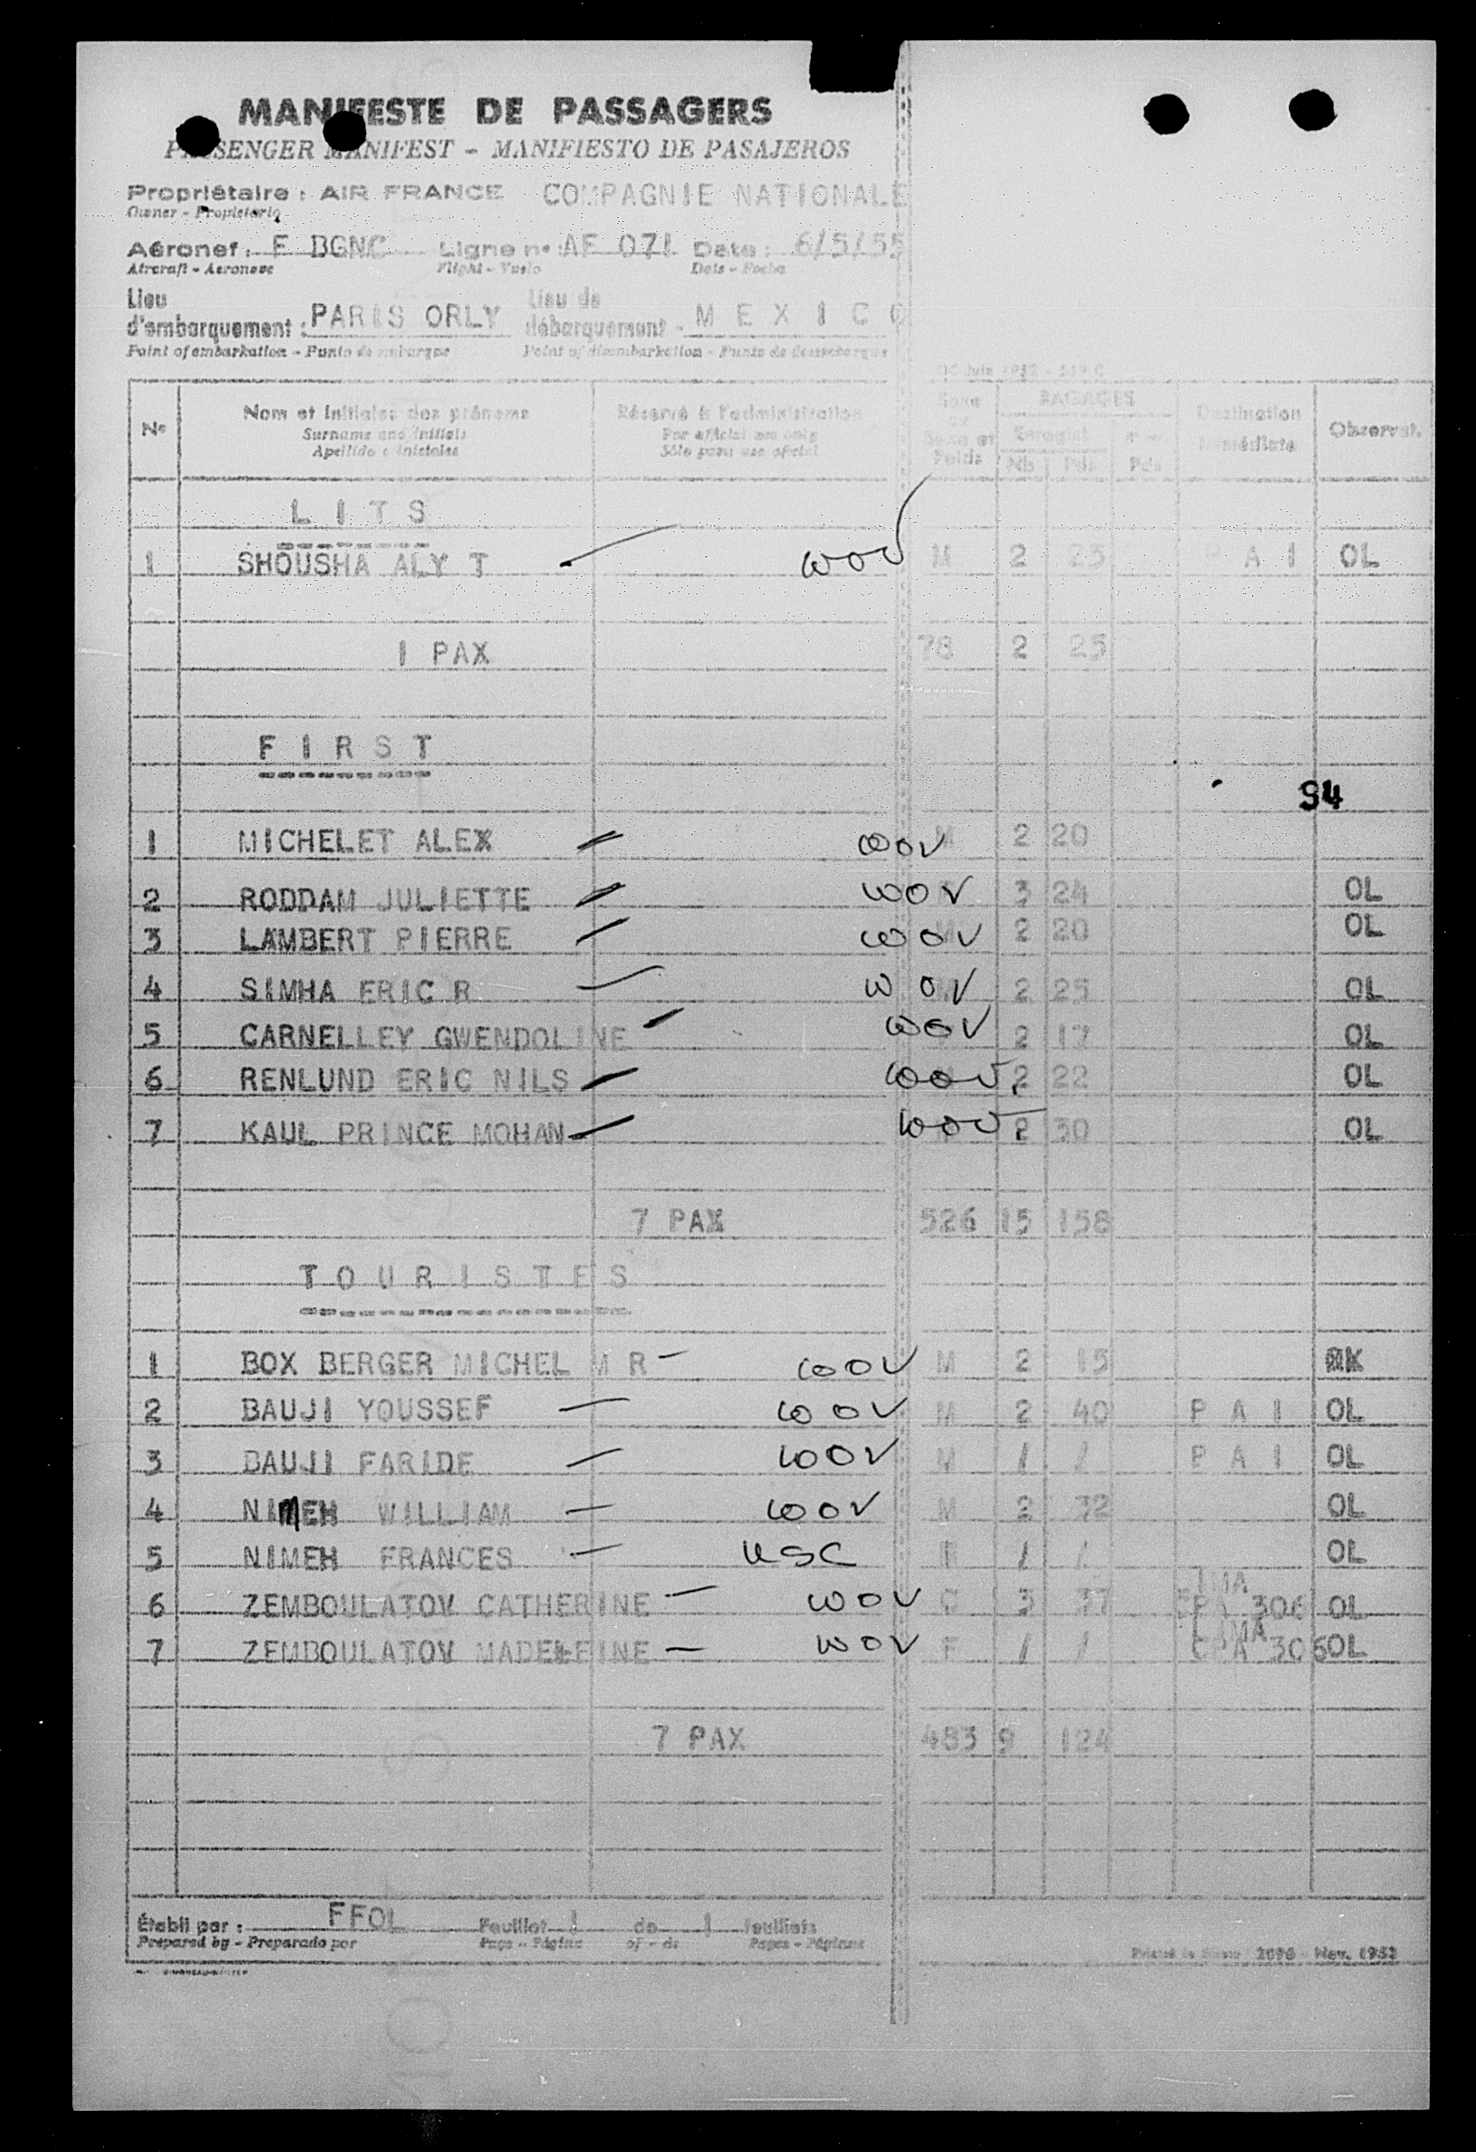 MANIFESTE DE PASSAGERS
PASSENGER MANIFEST - MANIFIESTO DE PASAJEROS
Propriétaire : AIR FRANCE COMPAGNIE NATIONALE
Owner - Propietario
Aéronef : F BGNC Ligne n° : AF 071 Date : 6/5/55
Aircraft - Aeronave Flight - Vuelo Date - Fecha
Lieu d'embarquement : PARIS ORLY Lieu de débarquement - MEXICO
Point of embarkation - Punto de embarque Point of disembarkation - Punto de desembarque
N° Nom et initiales des prénoms Réservé à l'administration Sexe BAGAGES Destination Observat.
Surname and initials For official use only Sexe et Enregist
Apellido e iniciales Sólo para uso oficial Poids Nb Pds Pds
LITS
1 SHOUSHA ALY T WOV M 2 25 PAI OL
1 PAX 78 2 25
FIRST
94
1 MICHELET ALEX WOV M 2 20
2 RODDAM JULIETTE WOV 3 24 OL
3 LAMBERT PIERRE WOV M 2 20 OL
4 SIMHA ERIC R WOV M 2 25 OL
5 CARNELLEY GWENDOLINE WOV 2 17 OL
6 RENLUND ERIC NILS WOV 2 22 OL
7 KAUL PRINCE MOHAN WOV 2 30 OL
7 PAX 526 15 158
TOURISTES
1 BOX BERGER MICHEL M R WOV M 2 15 RK
2 BAUJI YOUSSEF WOV M 2 40 PAI OL
3 BAUJI FARIDE WOV M / / PAI OL
4 NIMEH WILLIAM WOV M 2 32 OL
5 NIMEH FRANCES USC / / OL
6 ZEMBOULATOV CATHERINE WOV 3 37 306 OL
7 ZEMBOULATOV MADELEINE WOV F / / CPA 306 OL
7 PAX 483 9 124
Établi par : FFOL Feuillet 1 de 1 feuillets
Prepared by - Preparado por Page - Página of - de Pages - Páginas
2096 - Nov. 1952